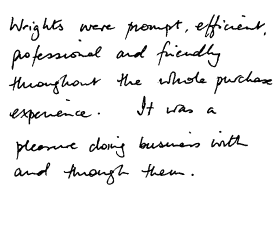 Wrights were prompt, efficient,
professional and friendly
throughout the whole purchase
experience. It was a
pleasure doing business with
and through them.